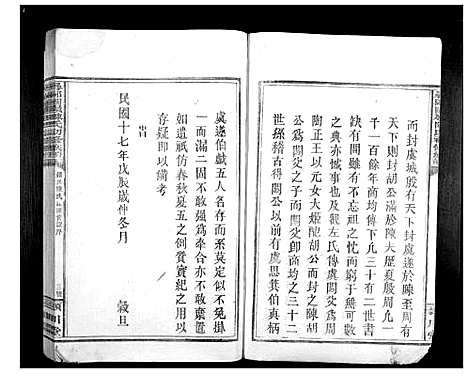 而封虞城殷有天下封虞遂於陳至周有
天下則封胡公滿於陳夫歷夏殷周凡一
千一百餘年商均而下凡三十有二世書
缺有間雖有不忘祖之忱實窮於追遡
之典亦憾事也及觀左氏傳虞閼父為周
陶正王以元女大姬配胡公而封之陳胡
公為閼父之子而閼父卽商均之三十一
世孫稽古得閼公以前有虞思箕伯直柄
虞遂伯戲五人名存而系莫定似不免掛
一而漏二固不敢強為牽合亦不敢棄置
如遺祇仿春秋夏五之例貴寶紀之以
存疑即以備考
旹
民國十七年戊辰歲仲冬月 穀旦
潁川堂